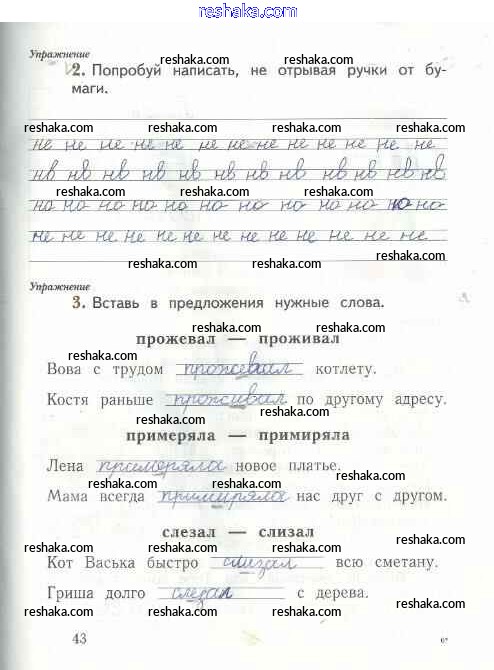 reshaka.com
Упражнение
reshaka.com reshaka.com
2. Попробуй написать, не отрывая ручки от бу-
маги. reshaka.com
reshaka.com reshaka.com reshaka.com
не не не не не не не не не не не не
reshaka.com reshaka.com
нв нв нв нв нв нв нв нв нв нв нв нв
reshaka.com reshaka.com
но но но но но но но но но но но но
reshaka.com reshaka.com
не не не не не не не не не не не не не
reshaka.com reshaka.com
Упражнение
reshaka.com
3. Вставь в предложения нужные слова.
reshaka.com reshaka.com
прожевал — проживал
reshaka.com reshaka.com
Вова с трудом прожевал котлету.
reshaka.com
Костя раньше проживал по другому адресу.
reshaka.com reshaka.com
примеряла — примиряла
reshaka.com
Лена примеряла новое платье.
reshaka.com reshaka.com
Мама всегда примиряла нас друг с другом.
reshaka.com
слезал — слизал
reshaka.com reshaka.com
Кот Васька быстро слизал всю сметану.
reshaka.com reshaka.com
Гриша долго слезал с дерева.
reshaka.com reshaka.com reshaka.com
43
6*
reshaka.com